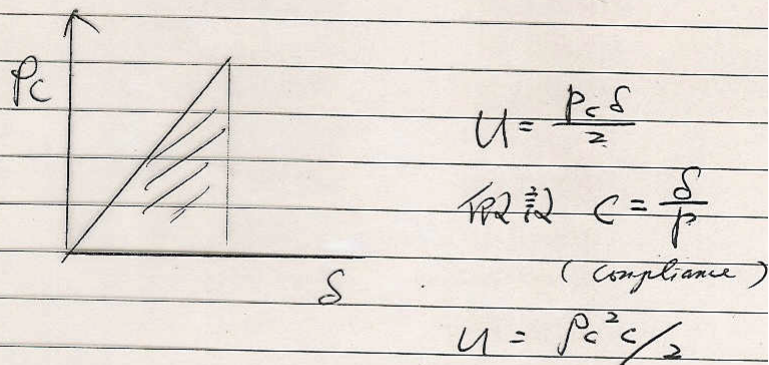 Pc
δ
U = Pc δ / 2
假設 C = δ / P
(compliance)
U = Pc²c/2